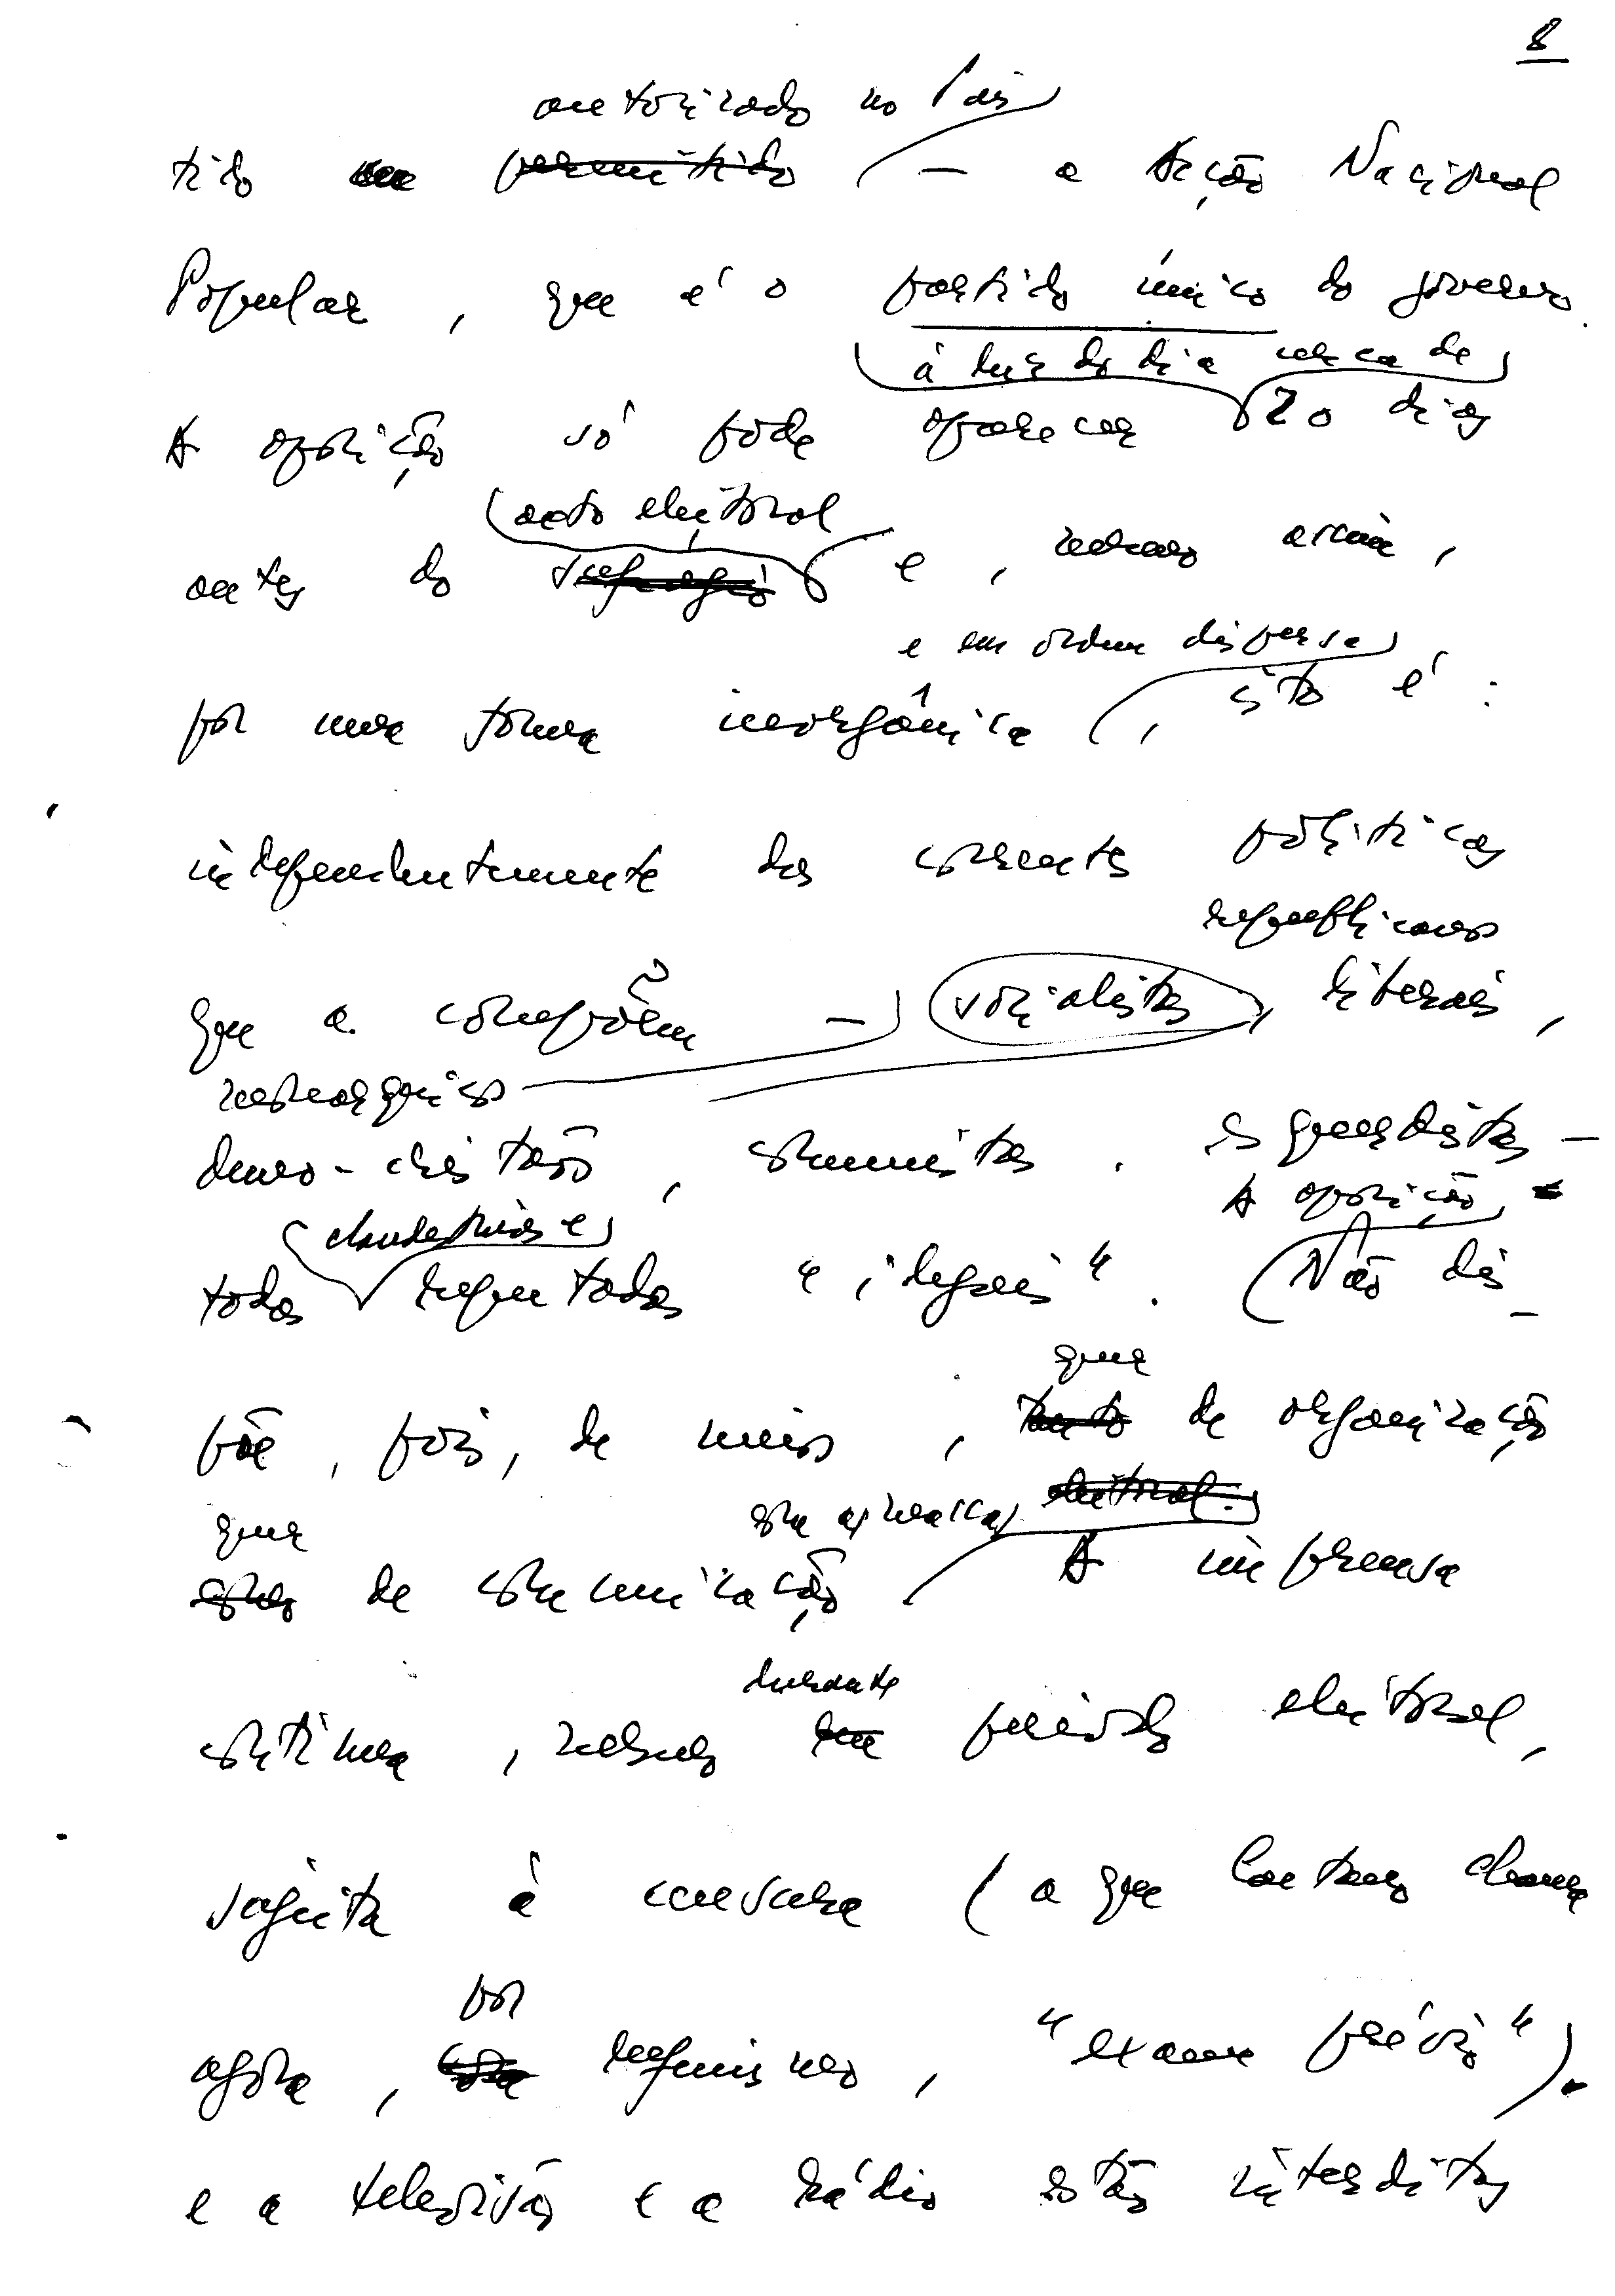 8
autorizado no País
tido em permitido — a Acção Nacional
Popular, que é o partido único do governo.
à luz do dia cerca de
A oposição só pode aparecer 20 dias
acto eleitoral
antes do sufrágio e, mesmo assim,
e em ordem dispersa
por uma forma inorgânica, isto é:
independentemente das correntes políticas
republicanos
que a compõem — socialistas, liberais,
monárquicos
demo-cristãos, comunistas, esquerdistas —
A oposição
clandestinas e
todas reputadas "ilegais". Não dis-
quer
põe, pois, de meios, tanto de organização
quer com as massas eleitoral.
como de comunicação A imprensa
durante
continua, mesmo em período eleitoral,
sujeita à censura (a que Caetano chama
por
agora, com eufemismo, "exame prévio").
e a televisão e a rádio estão interditas